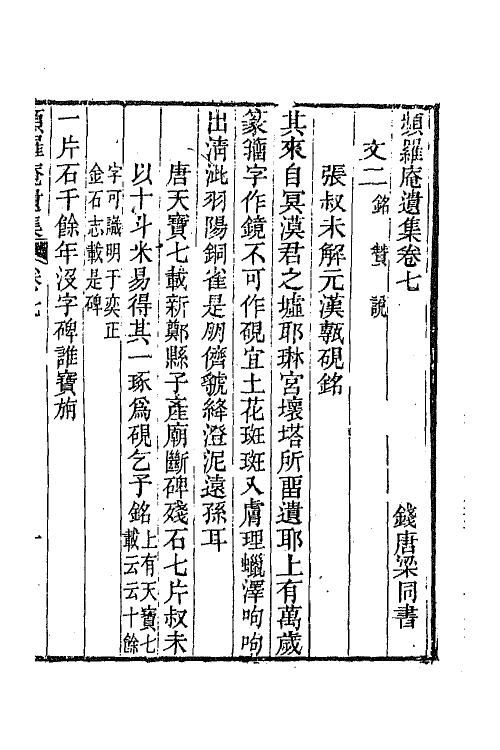 頻羅庵遺集卷七
錢唐梁同書
文二 銘 贊 說
張叔未解元漢瓴硯銘
其來自冥漠君之墟耶琳宮壞塔所畱遺耶上有萬歲
篆籀字作鏡不可作硯宜土花斑斑入膚理蠟澤呴呴
出淸泚羽陽銅雀是朋儕虢絳澄泥遠孫耳
唐天寶七載新鄭縣子產廟斷碑殘石七片叔未
以十斗米易得其一琢爲硯乞予銘上有天寶七
載云云十餘
字可識明于奕正
金石志載是碑
一片石千餘年沒字碑誰寶旃
頻羅庵遺集 卷七 一